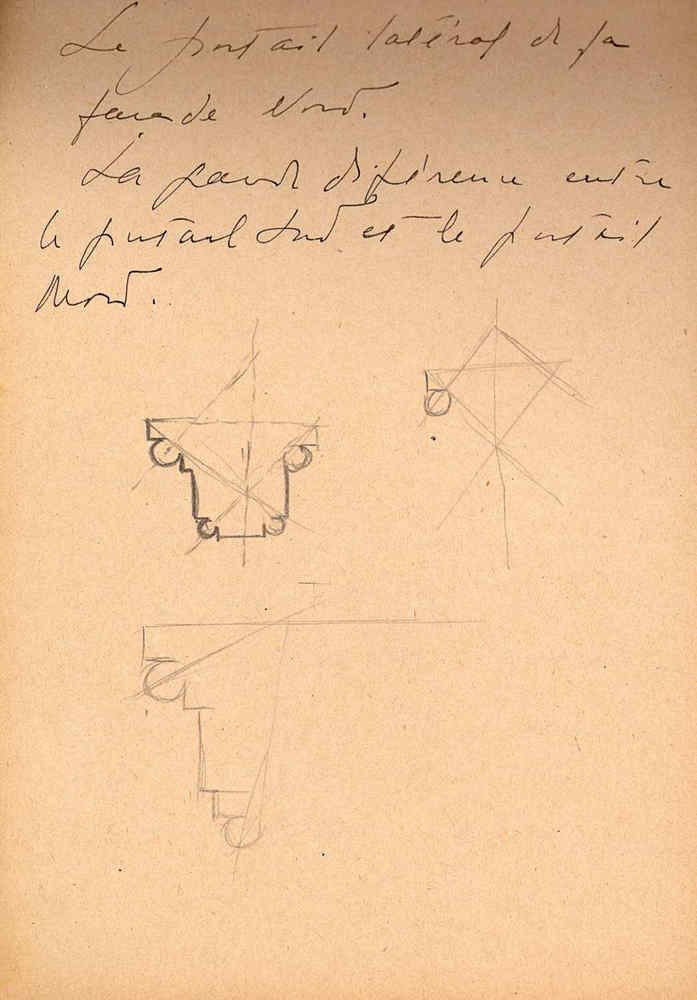 Le portail latéral de la
façade Nord.
La grande différence entre
le portail Sud et le portail
Nord.